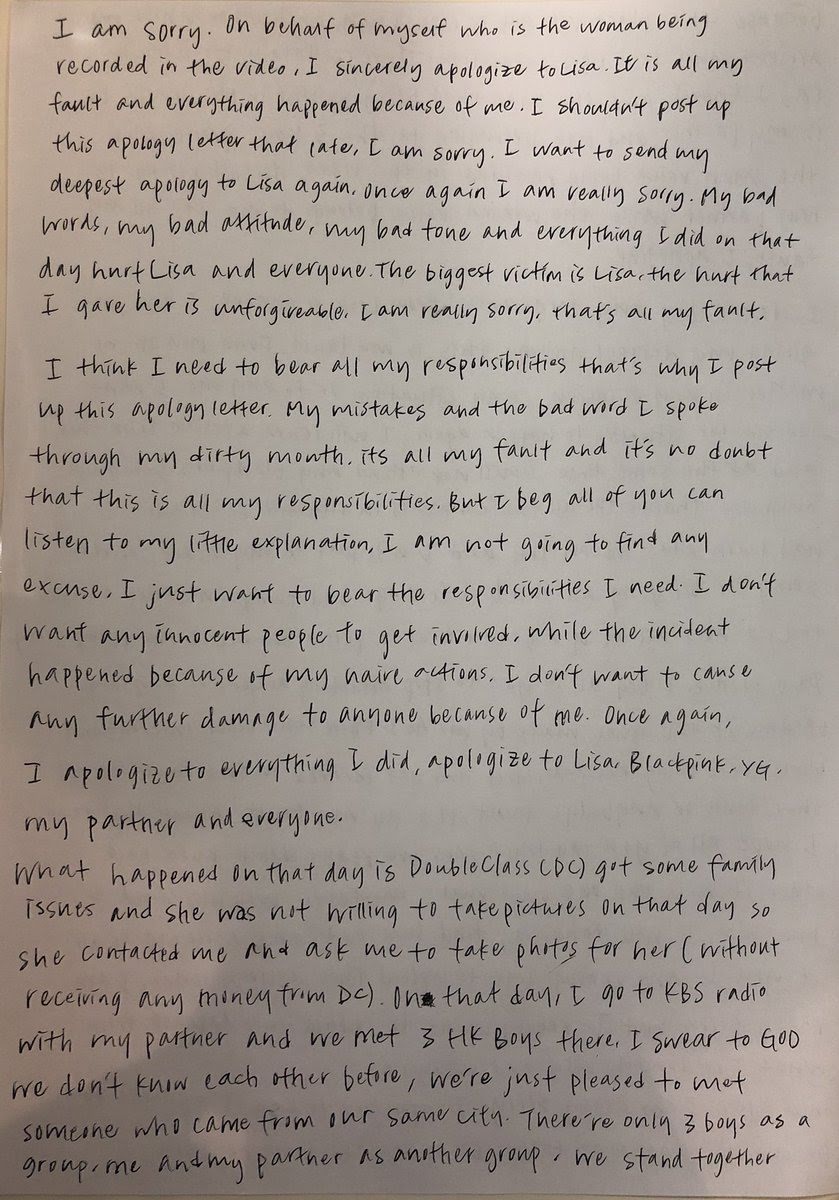 I am sorry. On behalf of myself who is the woman being
recorded in the video, I sincerely apologize to Lisa. It is all my
fault and everything happened because of me. I shouldn't post up
this apology letter that late, I am sorry. I want to send my
deepest apology to Lisa again, once again I am really sorry. My bad
words, my bad attitude, my bad tone and everything I did on that
day hurt Lisa and everyone. The biggest victim is Lisa, the hurt that
I gave her is unforgiveable, I am really sorry, that's all my fault.
I think I need to bear all my responsibilities that's why I post
up this apology letter. My mistakes and the bad word I spoke
through my dirty mouth, its all my fault and it's no doubt
that this is all my responsibilities. But I beg all of you can
listen to my little explanation, I am not going to find any
excuse, I just want to bear the responsibilities I need. I don't
want any innocent people to get involved, while the incident
happened because of my naive actions, I don't want to cause
any further damage to anyone because of me. Once again,
I apologize to everything I did, apologize to Lisa, Blackpink, YG,
my partner and everyone.
What happened on that day is DoubleClass (DC) got some family
issues and she was not willing to take pictures on that day so
she contacted me and ask me to take photos for her (without
receiving any money from DC). On that day, I go to KBS radio
with my partner and we met 3 HK Boys there, I swear to GOD
we don't know each other before, we're just pleased to met
someone who came from our same city. There're only 3 boys as a
group, me and my partner as another group, we stand together